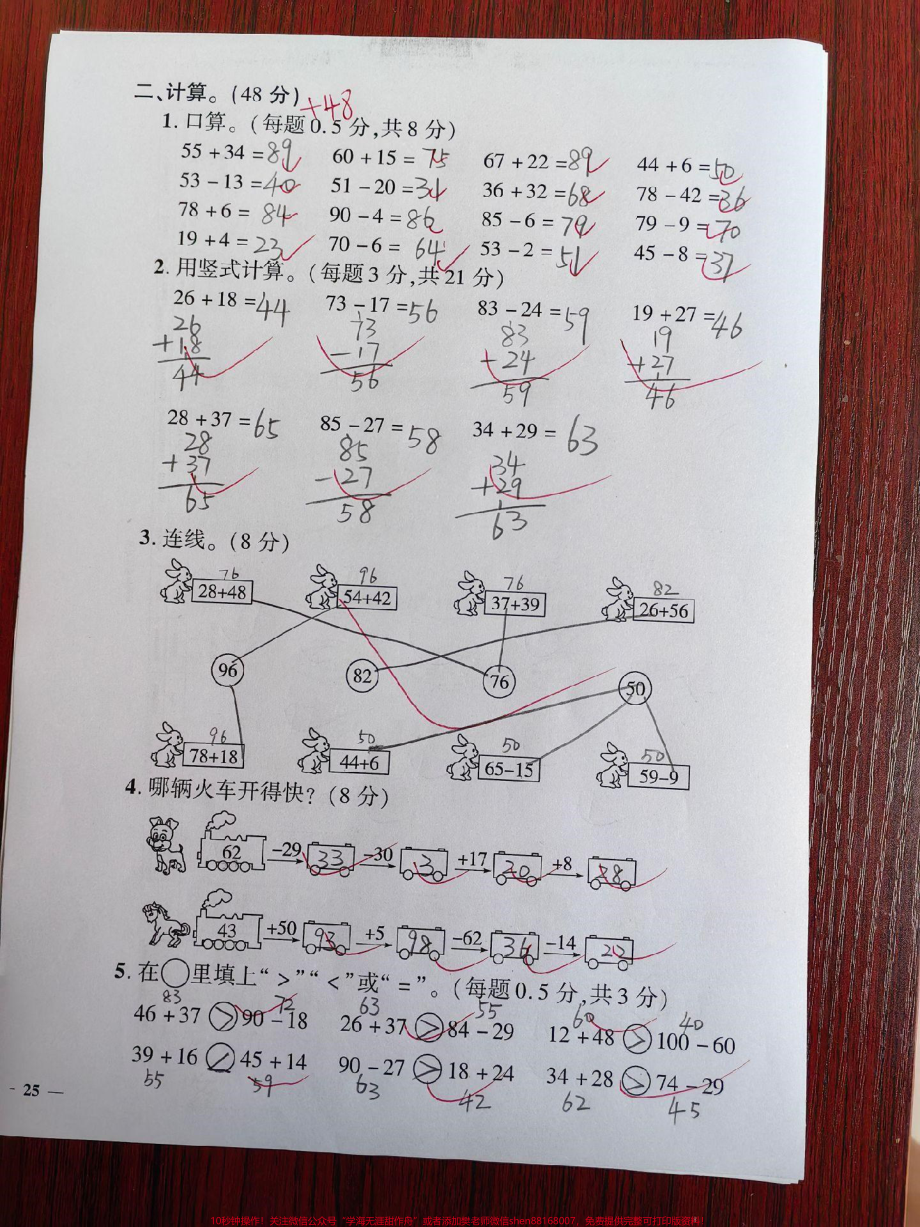 二、计算。(48 分)
+48
1. 口算。(每题 0.5 分,共 8 分)
55 + 34 = 89 60 + 15 = 75 67 + 22 = 89 44 + 6 = 50
53 - 13 = 40 51 - 20 = 31 36 + 32 = 68 78 - 42 = 36
78 + 6 = 84 90 - 4 = 86 85 - 6 = 79 79 - 9 = 70
19 + 4 = 23 70 - 6 = 64 53 - 2 = 51 45 - 8 = 37
2. 用竖式计算。(每题 3 分,共 21 分)
26 + 18 = 44 73 - 17 = 56 83 - 24 = 59 19 + 27 = 46
26 73 83 19
+18 -17 +24 +27
44 56 59 46
28 + 37 = 65 85 - 27 = 58 34 + 29 = 63
28 85 34
+37 -27 +29
65 58 63
3. 连线。(8 分)
76 96 76 82
28+48 54+42 37+39 26+56
96 82 76 50
96 50 50 50
78+18 44+6 65-15 59-9
4. 哪辆火车开得快? (8 分)
62 -29 33 -30 3 +17 20 +8 28
43 +50 93 +5 98 -62 36 -14 22
5. 在○里填上“ > ”“ < ”或“ = ”。(每题 0.5 分,共 3 分)
83 72 63 55 60 40
46 + 37 > 90 - 18 26 + 37 > 84 - 29 12 + 48 > 100 - 60
39 + 16 < 45 + 14 90 - 27 > 18 + 24 34 + 28 > 74 - 29
55 59 63 42 62 45
- 25 —
10秒钟操作!关注微信公众号“学海天涯甜作舟”或者添加樊老师微信shen88168007,免费提供完整可打印版资料!